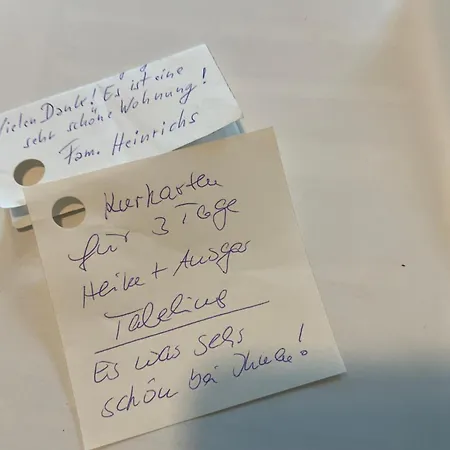 Vielen Dank! Es ist eine
sehr schöne Wohnung!
Fam. Heinrichs
Kurkarten
für 3 Tage
Heike + Ansgar
Tabeling
Es was sehr
schön bei Ihnen!